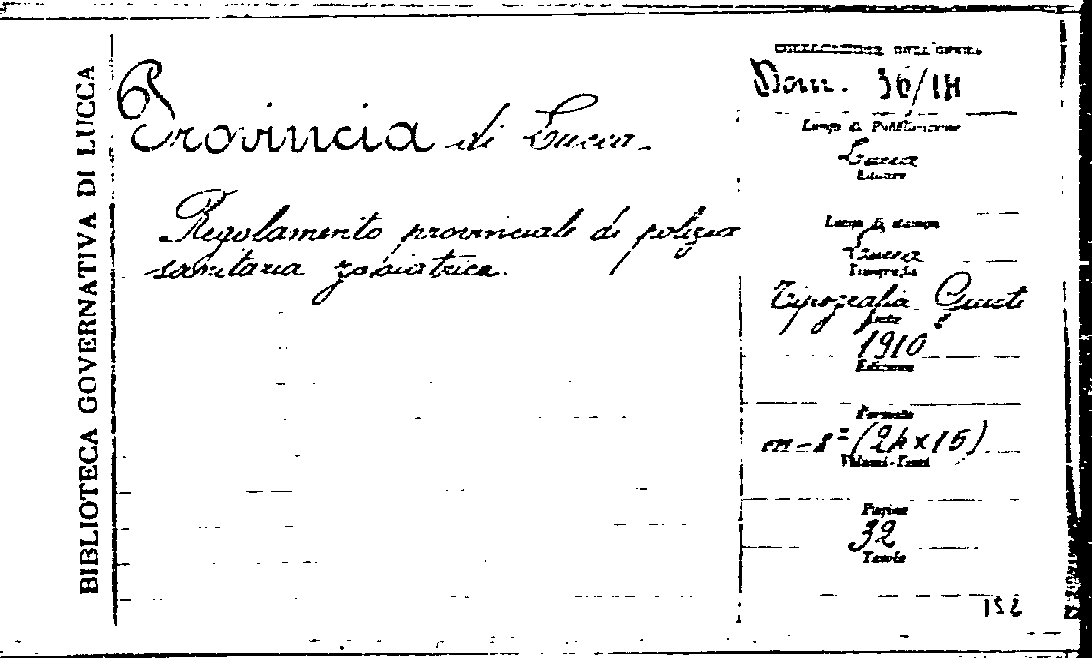 BIBLIOTECA GOVERNATIVA DI LUCCA
Provincia di Lucca.
Regolamento provinciale di polizia
sanitaria zooiatrica.
COLLOCAZIONE DELL'OPERA
Dom. 36/14
Luogo di Pubblicazione
Lucca
Editore
Luogo di stampa
Lucca
Tipografia
Tipografia Giusti
Data
1910
Edizione
Formato
in-8º (24x16)
Volumi-Tomi
Pagine
32
Tavole
152